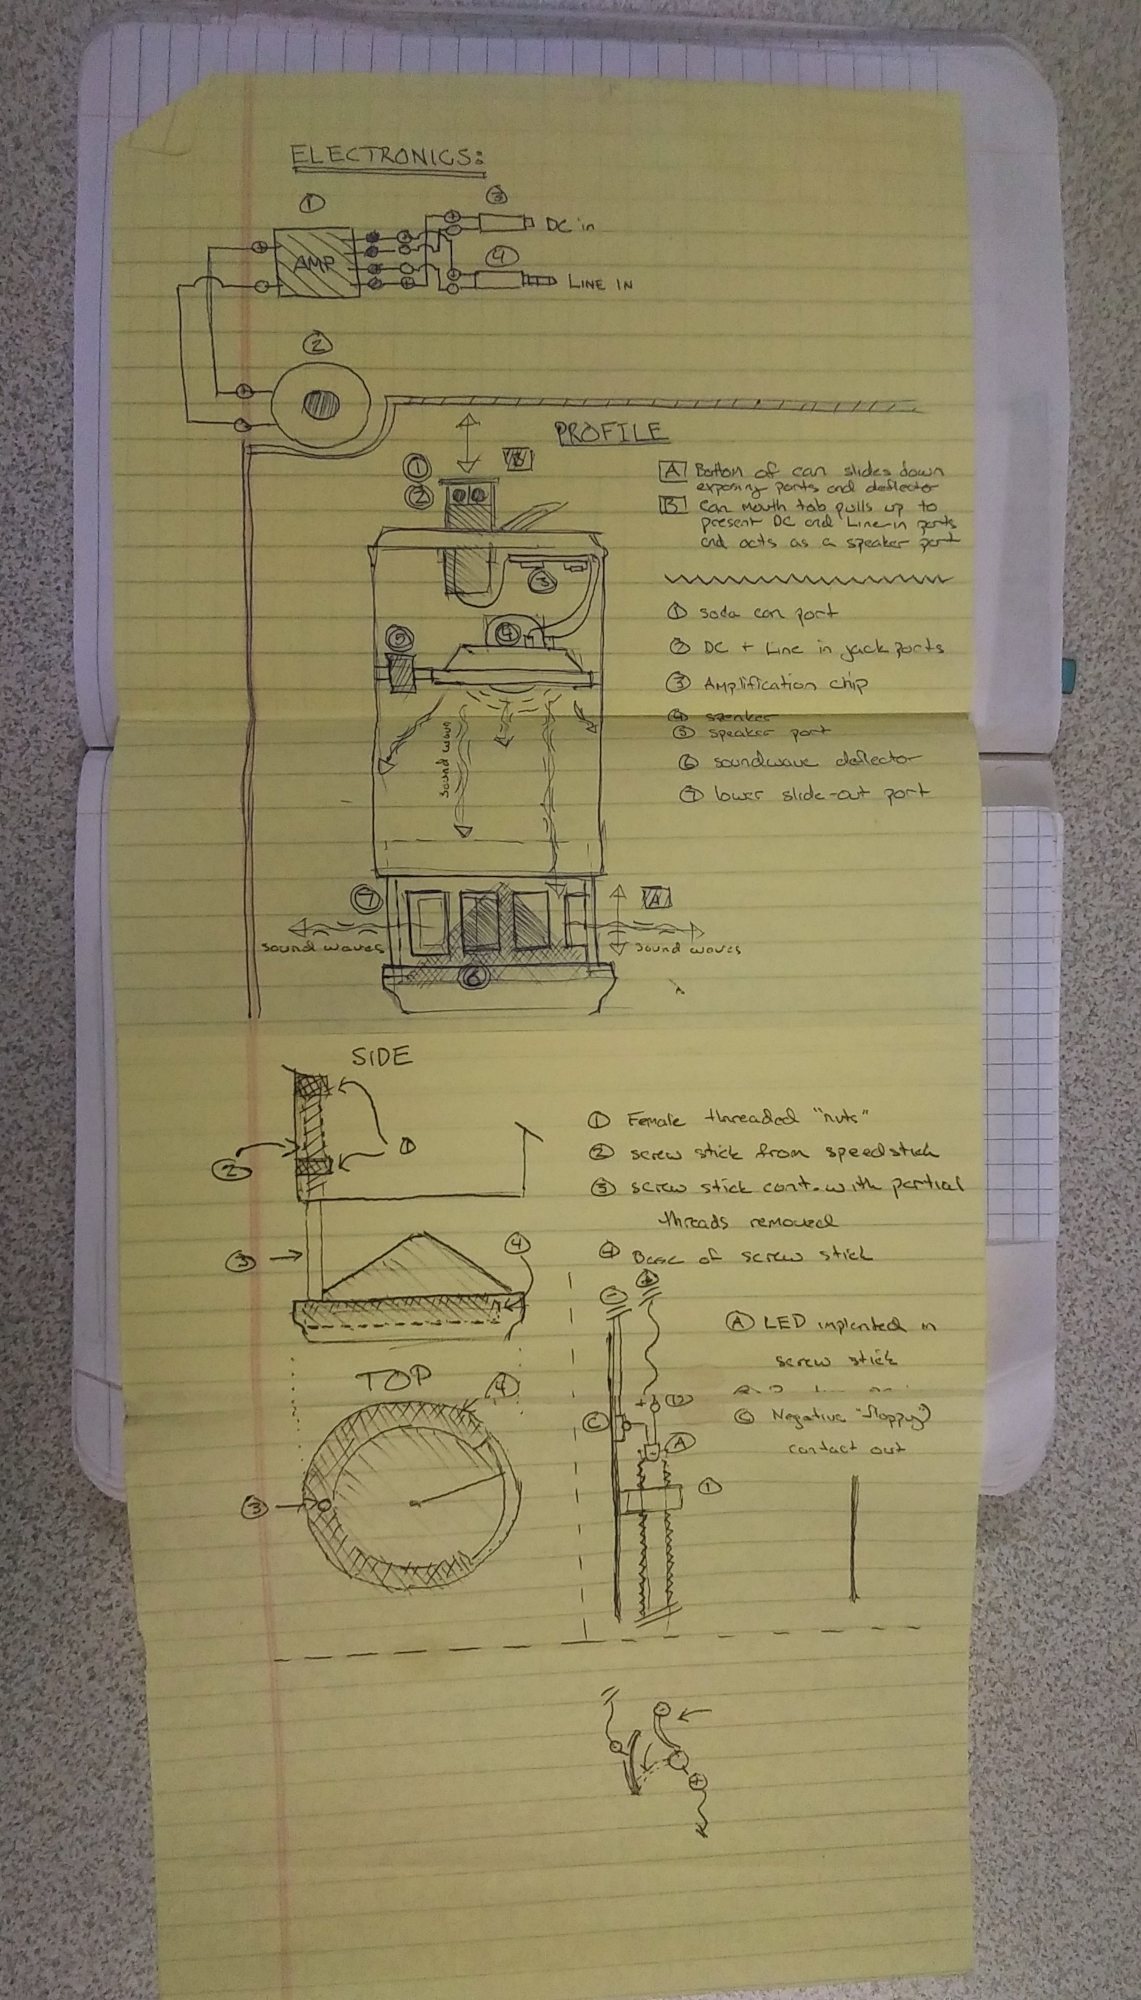 ELECTRONICS:
①
③
AMP
DC in
④
LINE IN
②
PROFILE
①
②
B
A Bottom of can slides down
exposing ports and deflector
B Can mouth tab pulls up to
present DC and Line-in ports
and acts as a speaker port
③
④
⑤
① soda can port
② DC + Line in jack ports
③ Amplification chip
④ speaker
⑤ speaker port
⑥ soundwave deflector
⑦ lower slide-out port
sound wave
⑦
A
sound waves
sound waves
⑥
SIDE
①
②
③
④
① Female threaded "nuts"
② screw stick from speedstick
③ screw stick cont. with partial
threads removed
④ Base of screw stick
TOP
④
③
Ⓐ LED implanted in
screw stick
Ⓒ Negative "floppy"
contact out
Ⓒ
Ⓐ
①